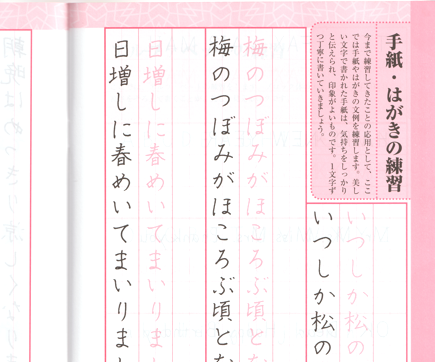 手紙・はがきの練習
今まで練習してきたことの応用として、ここ
では手紙やはがきの文例を練習します。美し
い文字で書かれた手紙は、気持ちをしっかり
と伝えられ、印象がよいものです。一文字ず
つ丁寧に書いていきましょう。
いつしか松の
いつしか松の
梅のつぼみがほころぶ頃とな
梅のつぼみがほころぶ頃とな
日増しに春めいてまいりまし
日増しに春めいてまいりまし
朝晩はめっきり涼しくなりま